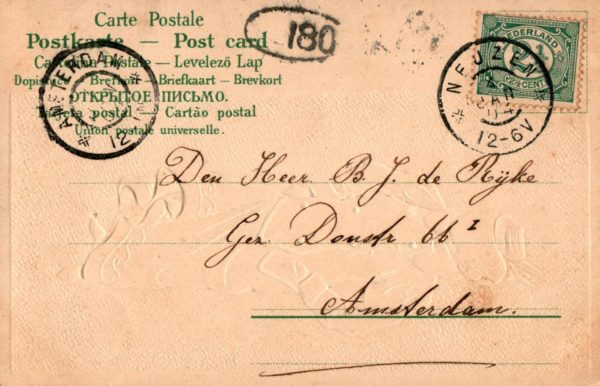 Carte Postale
Postkarte — Post card
Cartolina Postale — Levelező Lap
Dopisnice — Brefkort — Briefkaart — Brevkort
ОТКРЫТОЕ ПИСЬМО.
Tarjeta postal — Cartão postal
Union postale universelle.
180
AMSTERDAM
12
NEDERLAND
2½
2½ CENT
NEUZEN
JAN
12-6V
Den Heer B. J. de Rijke
Ger. Doustr 66 I
Amsterdam.